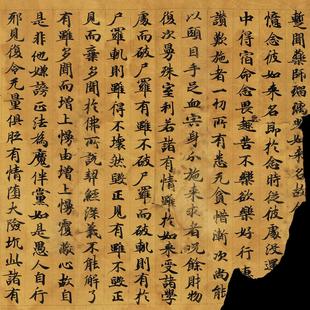 暫聞藥師瑠璃光如来名故
憶念彼如来名即於念時從彼處没還
中得宿命念畏惡趣苦不樂欲樂好行
讚歎施者一切所有悉无貪惜漸次尚能
以頭目手足血宍身分施来求者況餘財物
復次曼殊室利若諸有情雖於如来受諸學
處而破尸羅有雖不破尸羅而破軌則有於
尸羅軌則雖得不壞然毀正見有雖不毀正
見而棄多聞於佛所說契經深義不能解了
有雖多聞而增上慢由增上慢覆蔽心故自
是非他嫌謗正法為魔伴黨如是愚人自行
邪見復令无量俱胝有情墮大險坑此諸有